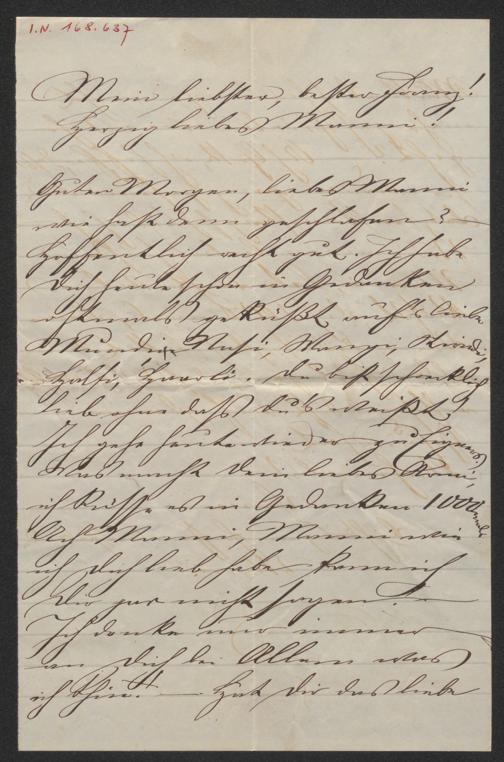 I.N. 168.637
Mein liebster, bester Franz!
Herzig liebes Manni!
Guten Morgen, liebes Manni
wie hast denn geschlafen?
Hoffentlich recht gut. Ich habe
Dich heute schon in Gedanken
öftermals geküßt auf's liebe
Mundi, Nasi, Wangi,
Halsi, Haarli. Du bist schrecklich
lieb ohne daß du's weißt.
Ich gehe heute wieder zu
Was macht Dein liebes Armi,
ich küsse es in Gedanken 1000
Ach Manni, Manni wie
ich Dich lieb habe kann ich
Dir gar nicht sagen!
Ich denke nur immer
an Dich bei Allem was
ich thue! Hat Dir das liebe